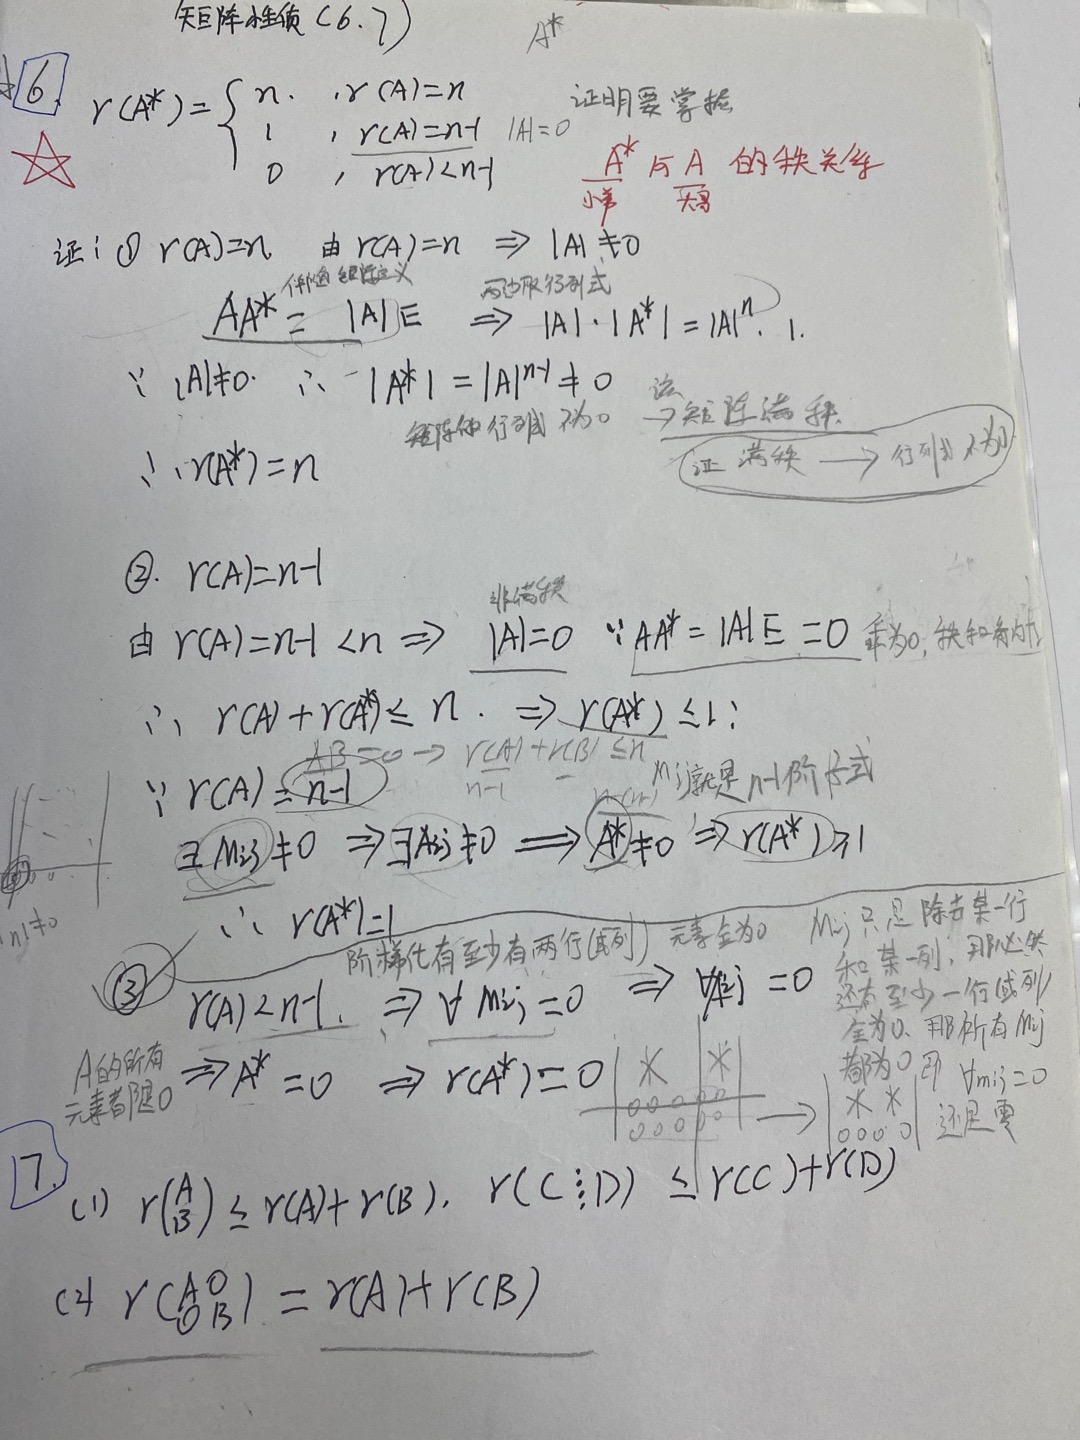 矩阵性质(6.7)
A*
6.
r(A*)={ n. , r(A)=n
1 , r(A)=n-1 |A|=0
0 , r(A)<n-1
证明要掌握
A*与A的秩关系
证: ① r(A)=n 由 r(A)=n ⇒ |A|≠0
伴随矩阵定义 两边取行列式
AA* = |A|E ⇒ |A|·|A*|=|A|ⁿ·1.
∵ |A|≠0. ∴ |A*|=|A|ⁿ⁻¹≠0
矩阵的行列式不为0 → 矩阵满秩
证 满秩 → 行列式不为0
∴ r(A*)=n
②. r(A)=n-1
非满秩
由 r(A)=n-1<n ⇒ |A|=0 ∵ AA*=|A|E=0 乘为0,秩和
∴ r(A)+r(A*)≤n. ⇒ r(A*)≤1;
AB=0 → r(A)+r(B)≤n
n-1
∵ r(A)=n-1 Mij就是n-1阶子式
∃Mij≠0 ⇒ ∃Aij≠0 ⟹ A*≠0 ⇒ r(A*)≥1
≠0
∴ r(A*)=1
阶梯化有至少有两行(或列)元素全为0
Mij只是除去某一行
和某一列,那必然
还有至少一行(或列)
全为0.那所有Mij
都为0 即 ∀mij=0
还是零
③ r(A)<n-1. ⇒ ∀Mij=0 ⇒ ∀Aij=0
A的所有
元素都是0
⇒ A*=0 ⇒ r(A*)=0
* *
0 0 0 0 0
0 0 0 0 0
→
* *
0 0 0 0
7.
(1) r(A B)≤r(A)+r(B). r(C⋮D) ≤ r(C)+r(D)
(2) r(A 0 0 B) = r(A)+r(B)